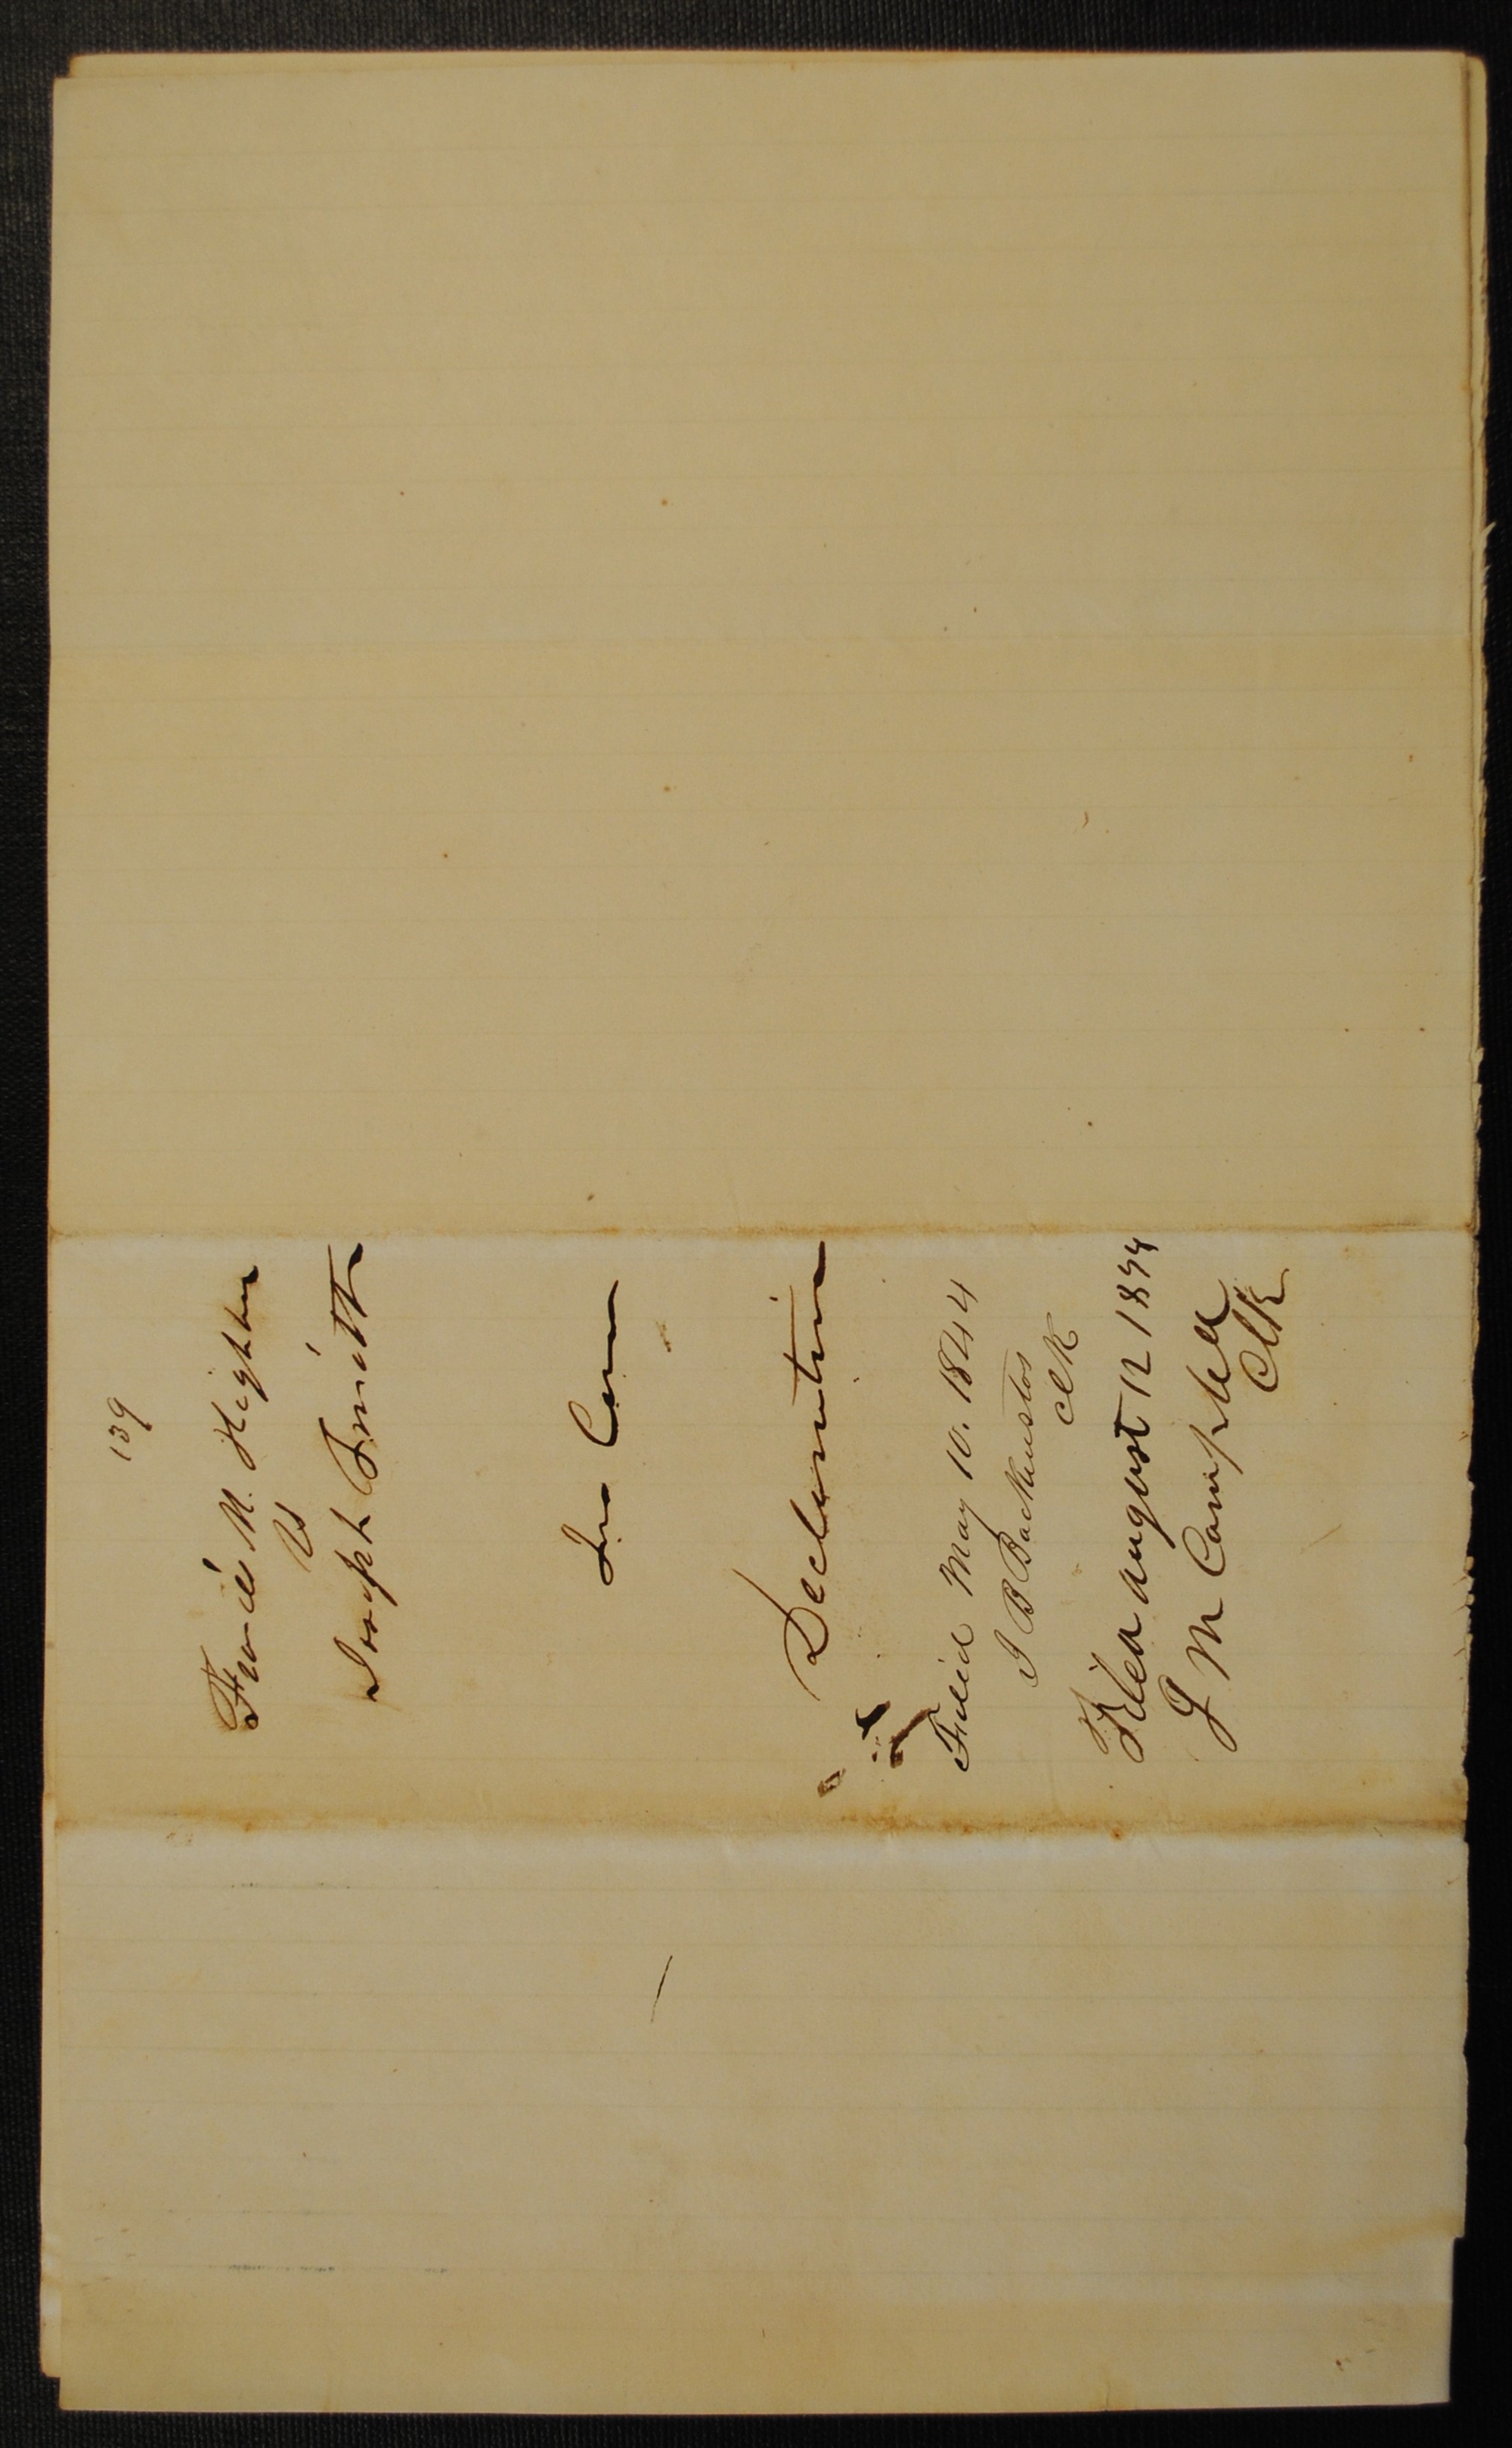 139
Francis M. Higbee
vs
Joseph Smith
In Case
Declaration
Filed May 10. 1844
J B Backenstos
Clk
Filed August 12 1844
J M Campbell
Clk